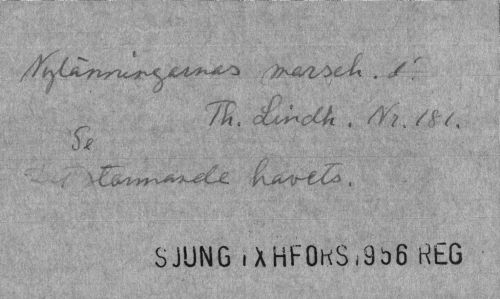 Nylänningarnas marsch. i.
Th. Lindh. Nr. 181.
Se
Det stormande havets.
SJUNG IX HFORS 1956 REG